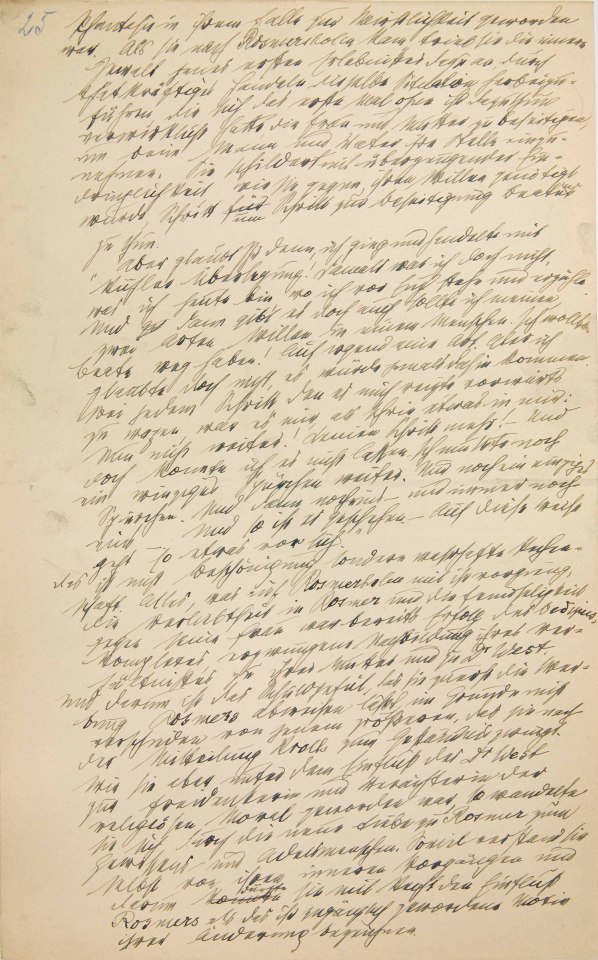 25
Phantasie in ihrem Falle zur Wirklichkeit geworden
war. Als sie nach Rosmersholm kam, trieb sie die innere
Gewalt jenes ersten Erlebnisses dazu an, durch
thatkräftiges Handeln dieselbe Situation herbeizu-
führen, die sich das erste Mal ohne ihr Dazuthun
verwirklicht hatte, die Frau und Mutter zu beseitigen,
um beim Mann und Vater ihre Stelle einzu-
nehmen. Sie schildert mit überzeugender Ein-
dringlichkeit wie sie gegen ihren Willen genötigt
wurde Schritt um Schritt zur Beseitigung Beatens
zu thun.
"Aber glaubt Ihr denn, ich ging und handelte mit
kühler Überlegung! Damals war ich doch nicht
was ich heute bin, wo ich vor Euch stehe und erzähle.
Und dann gibt es doch auch sollte ich meinen
zwei Arten Willen in einem Menschen. Ich wollte
Beate weg haben! Auf irgend eine Art. Aber ich
glaubte doch nicht, es würde jemals dahin kommen.
Bei jedem Schritt den es mich reizte vorwärts
zu wagen, war es mir als schrie etwas in mir:
Nun nicht weiter! Keinen Schritt mehr! – Und
doch konnte ich es nicht lassen. Ich musste noch
ein winziges Spürchen weiter. Und noch ein einziges
Spürchen. Und dann noch eins – und immer noch
eins – Und so ist es geschehen – Auf diese Weise
geht so etwas vor sich."
Das ist nicht Beschönigung, sondern wahrhafte Rechen-
schaft. Alles, was auf Rosmersholm mit ihr vorging,
die Verliebtheit in Rosmer und die Feindseligkeit
gegen seine Frau war bereits Erfolg des Oedipus-
komplexes, erzwungene Nachbildung ihres Ver-
hältnisses zu ihrer Mutter und zu Dr West.
Und darum ist das Schuldgefühl, das sie zuerst die Wer-
bung Rosmers abweisen läßt, im Grunde nicht
verschieden von jenem größeren, das sie nach
der Mitteilung Krolls zum Geständnis zwingt.
Wie sie aber unter dem Einfluß des Dr West
zur Freidenkerin und Verächterin der
religiösen Moral geworden war, so wandelte
sie sich durch die neue Liebe zu Rosmer zum
Gewissens- und Adelsmenschen. Soviel verstand sie
selbst von ihren inneren Vorgängen und
darum durfte sie mit Recht den Einfluß
Rosmers als das ihr zugänglich gewordene Motiv
ihrer Änderung bezeichnen.